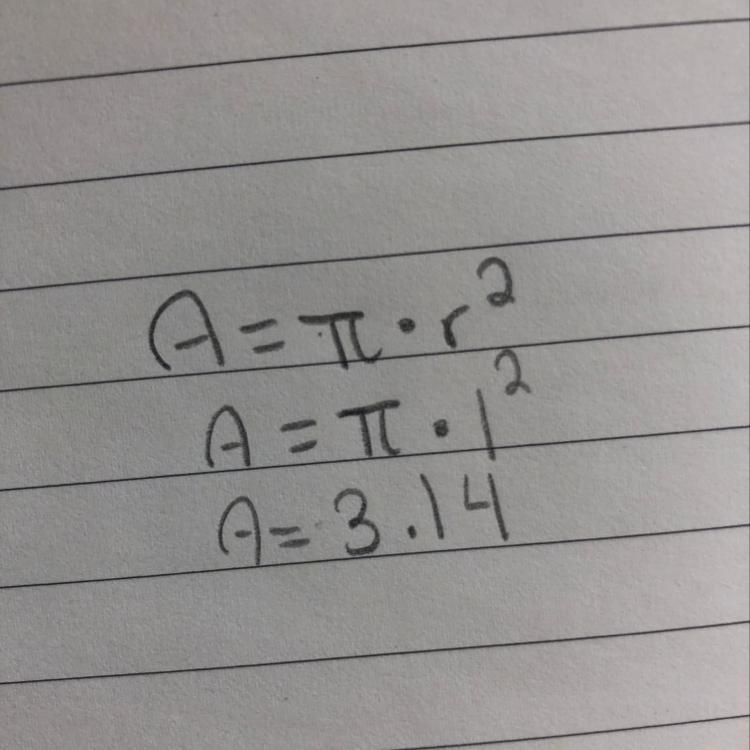 A = π · r²
A = π · 1²
A = 3.14